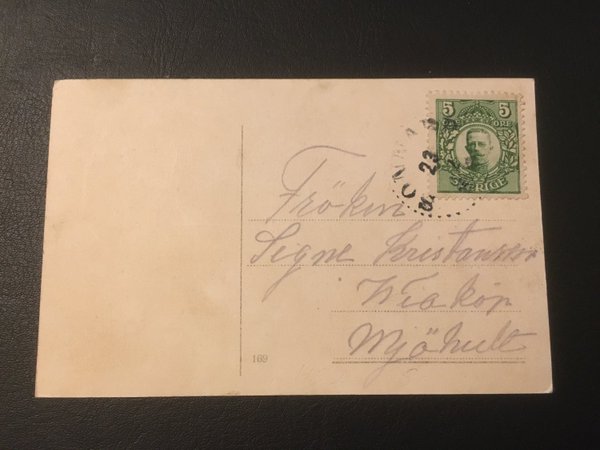 5 5
ÖRE
SVERIGE
23
Fröken
Signe Kristansson
Wiaköp
Mjöhult
169